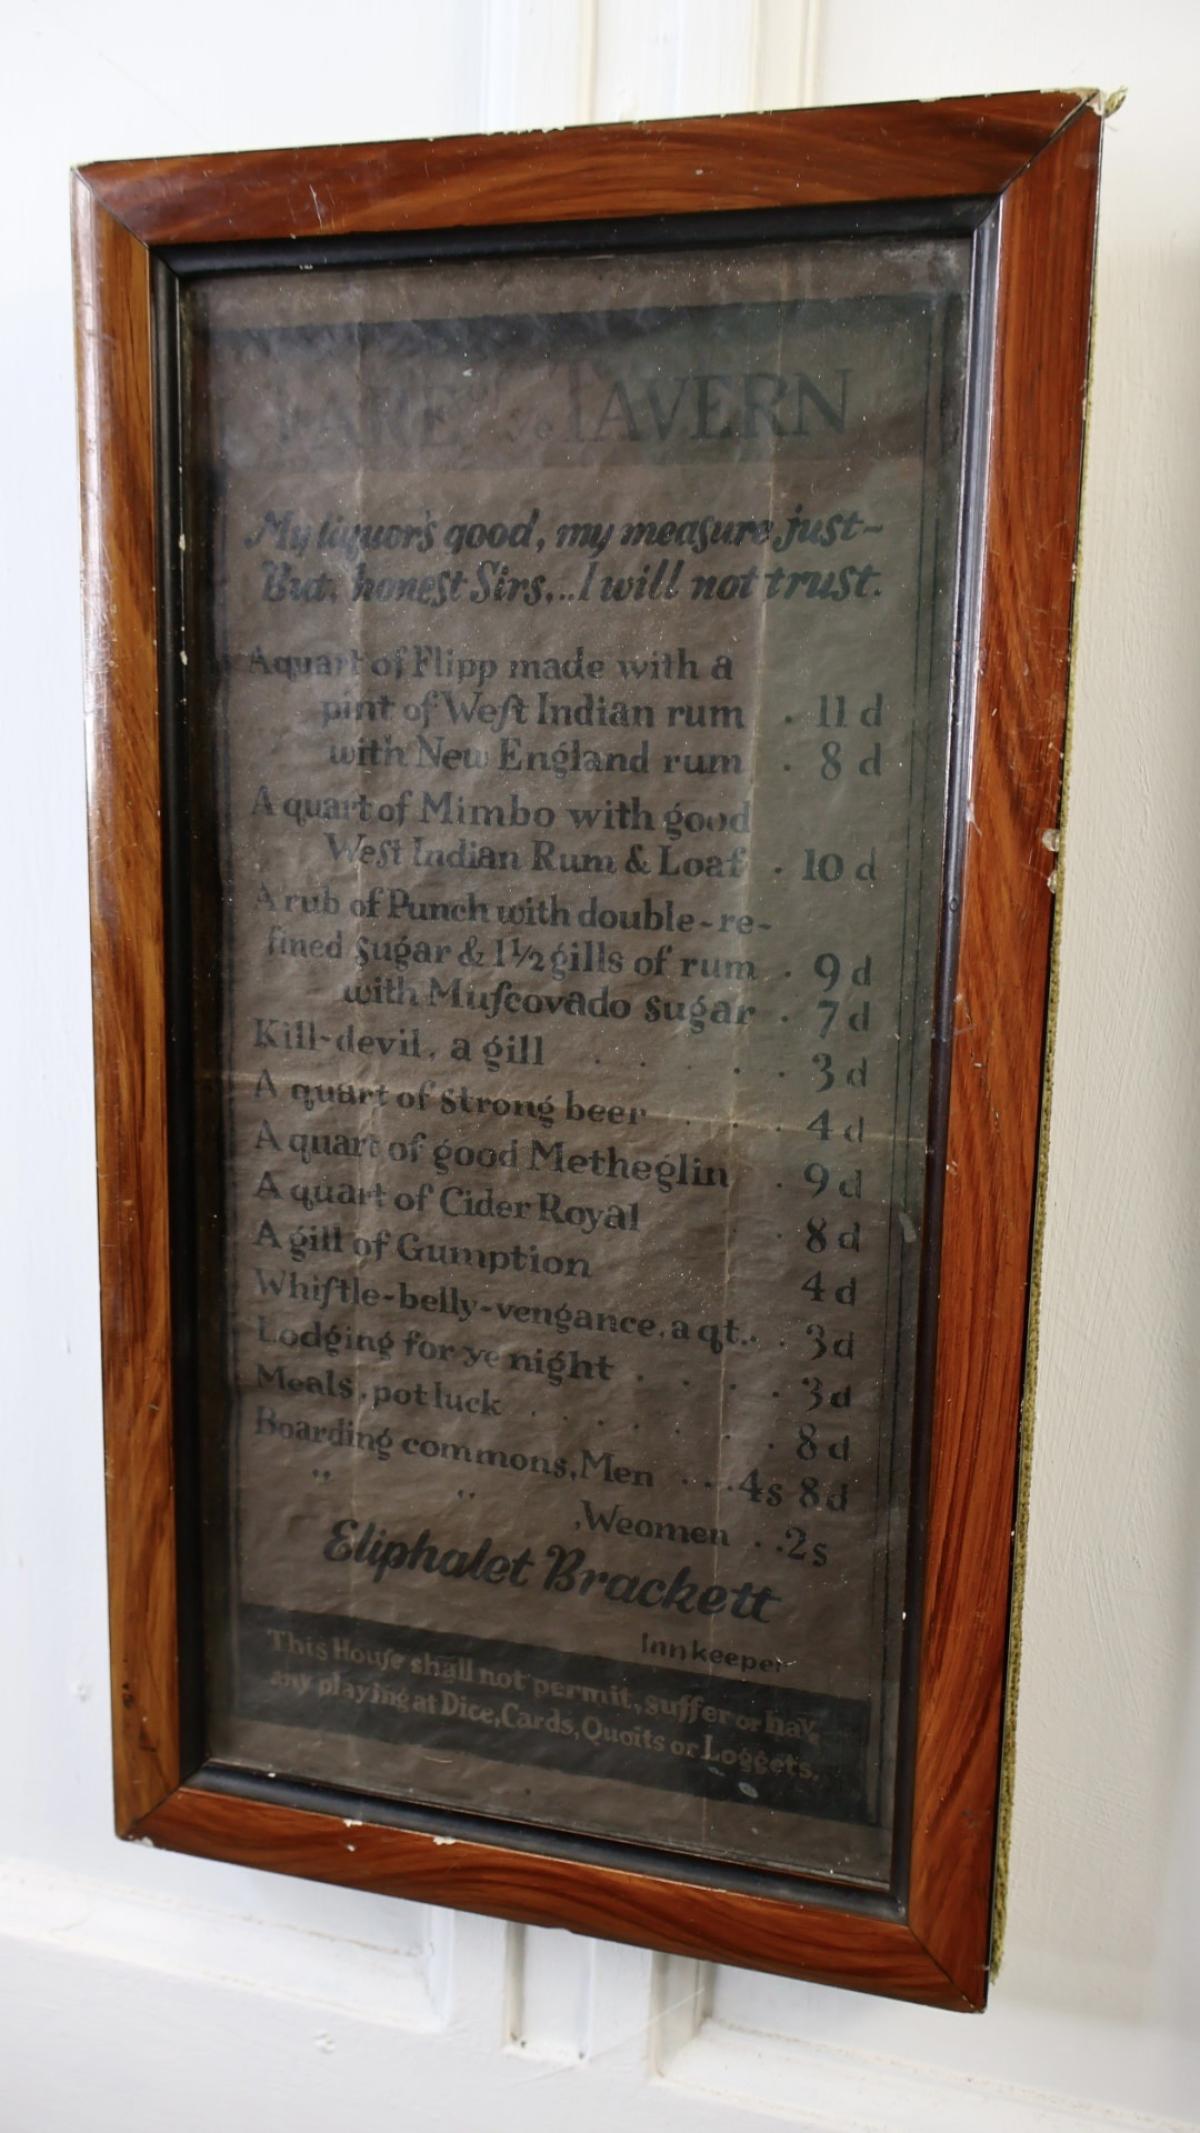 FARE of ye TAVERN
My liquor's good, my meaſure just~
But, honest Sirs,..I will not trust.
A quart of Flipp made with a
pint of Weſt Indian rum . 11 d
with New England rum . 8 d
A quart of Mimbo with good
West Indian Rum & Loaf . 10 d
A rub of Punch with double-re-
fined sugar & 1½ gills of rum . 9 d
with Muſcovado sugar . 7 d
Kill-devil, a gill . . . . . 3 d
A quart of strong beer . . . . 4 d
A quart of good Metheglin . 9 d
A quart of Cider Royal . 8 d
A gill of Gumption 4 d
Whiſtle-belly-vengance, a qt. . . 3d
Lodging for ye night . . . . 3 d
Meals, pot luck . . . . . . 8 d
Boarding commons, Men . . . 4s 8d
" " , Weomen . . 2s
Eliphalet Brackett
Innkeeper
This Houſe shall not permit, suffer or hav.
any playing at Dice, Cards, Quoits or Loggets.